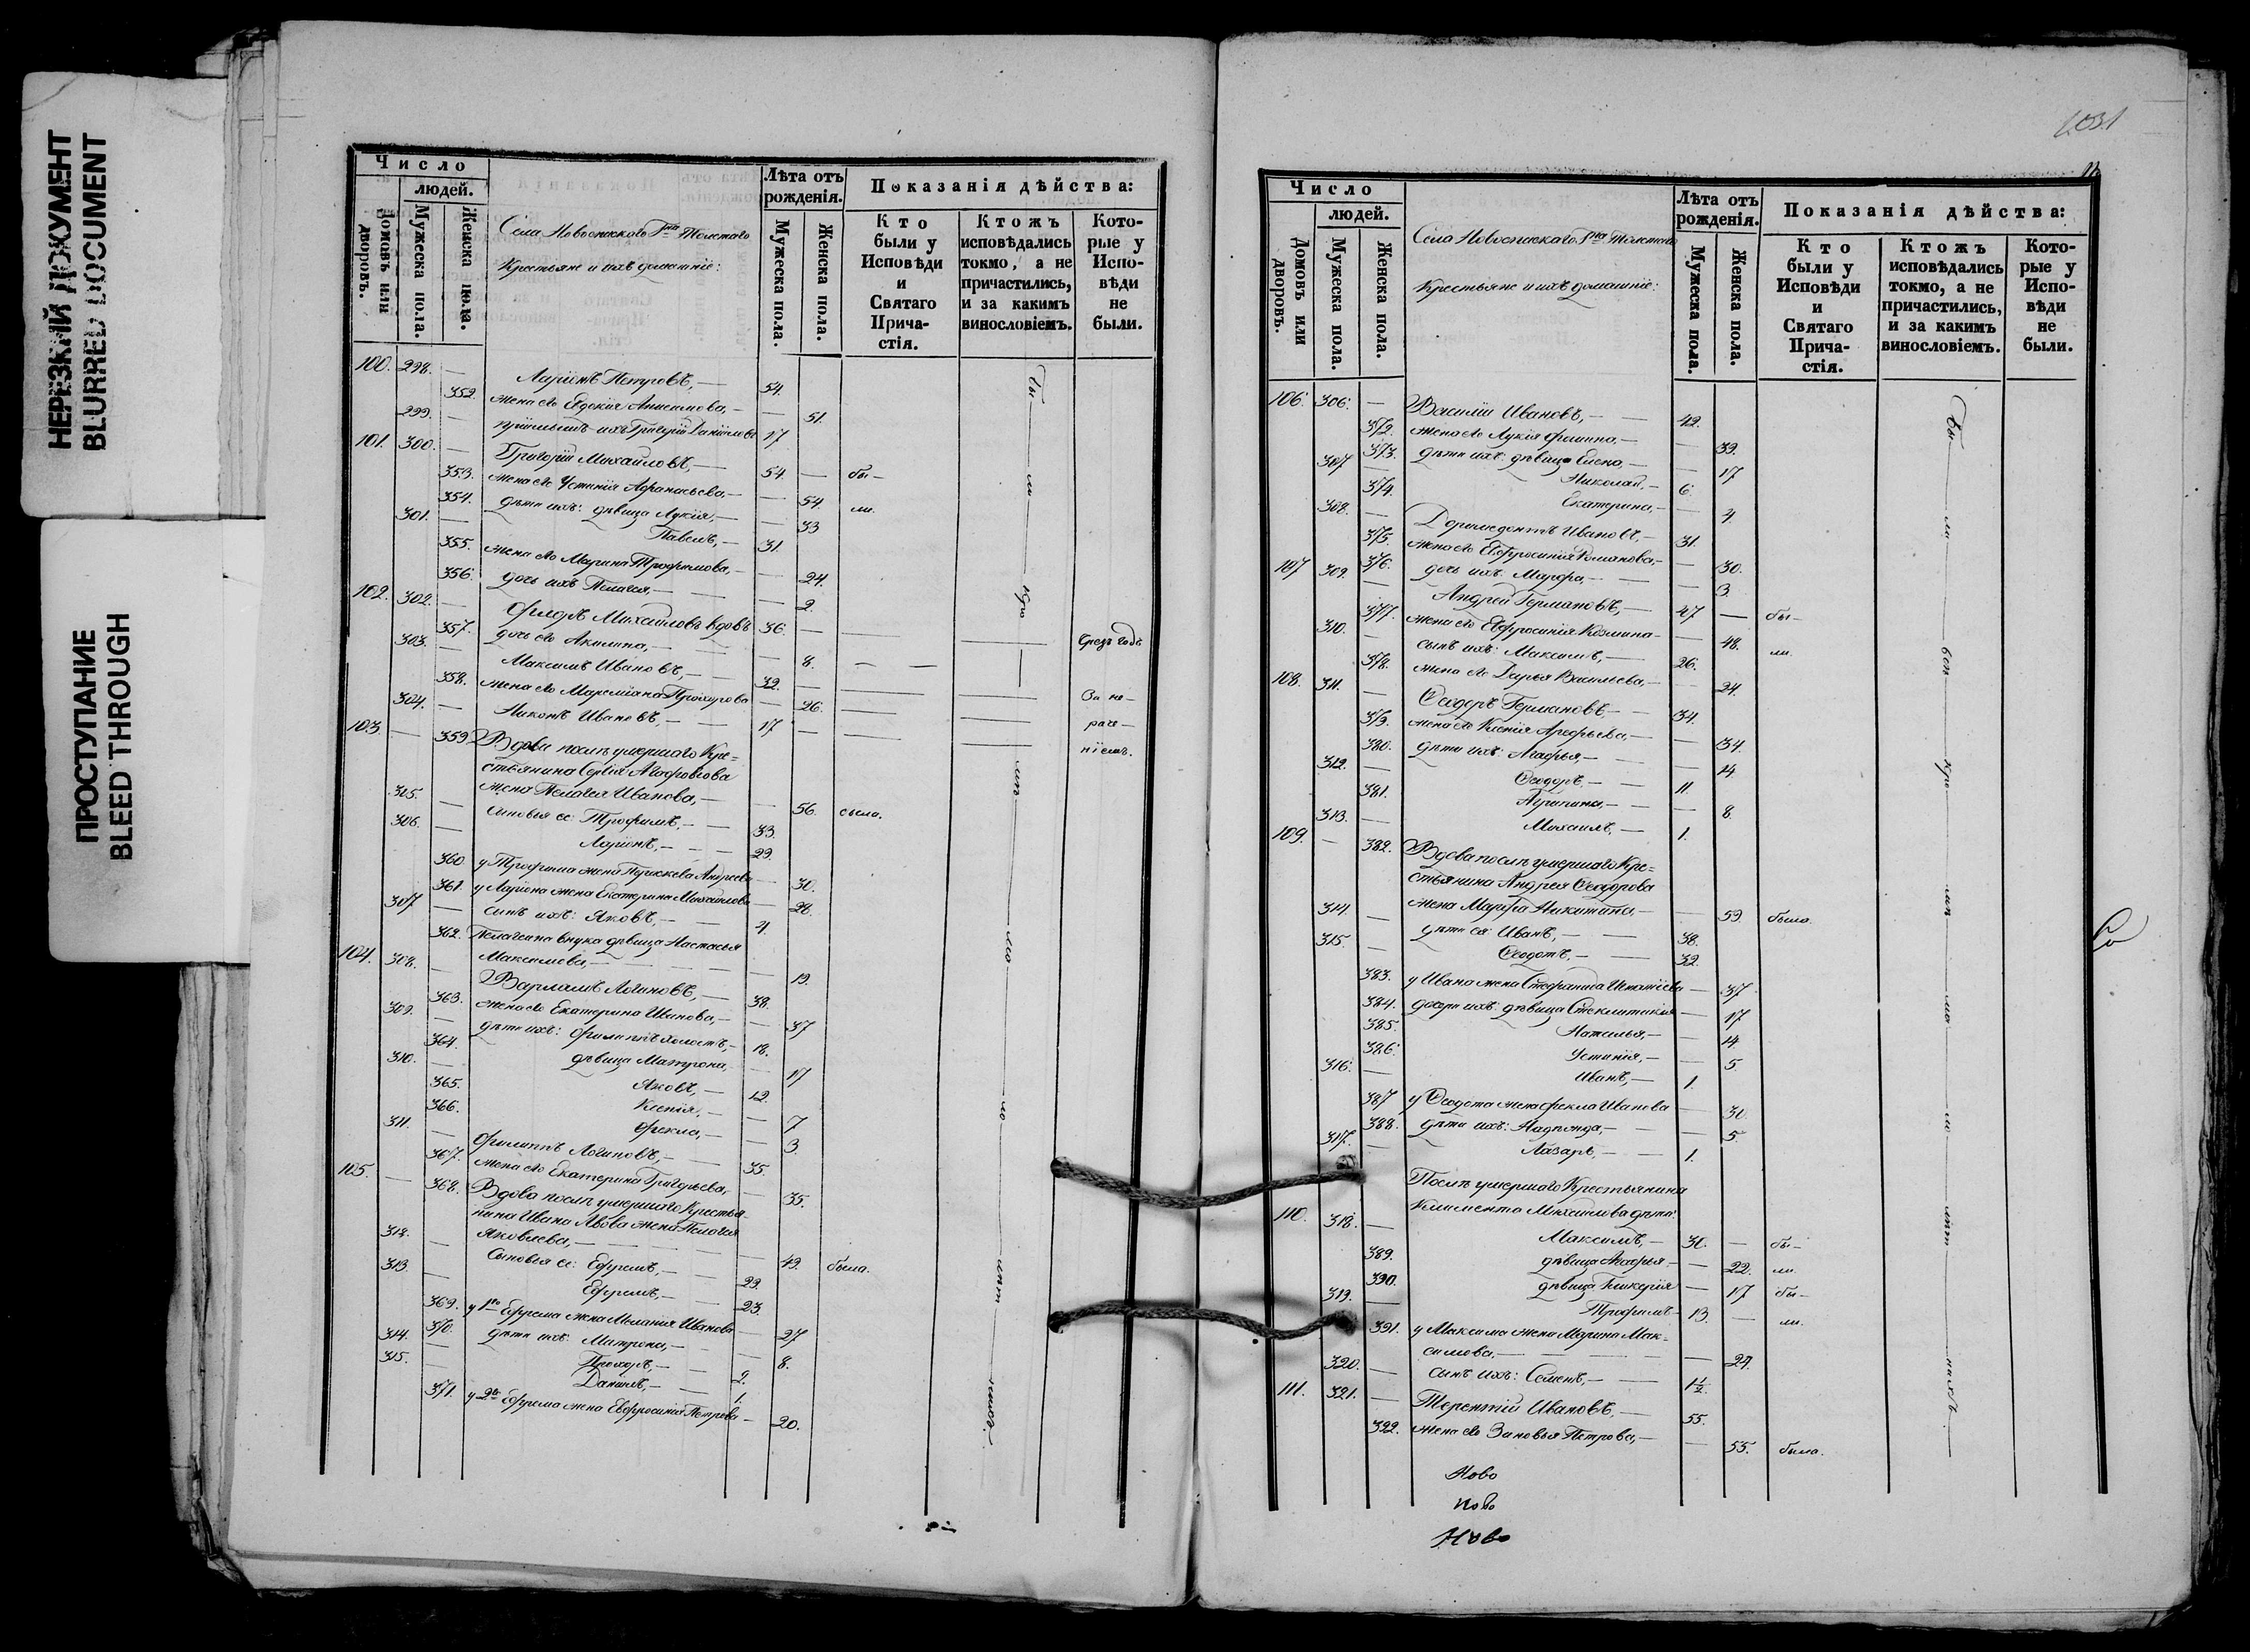 НЕРЕЗКИЙ ДОКУМЕНТ
BLURRED DOCUMENT
ПРОСТУПАНИЕ
BLEED THROUGH
Число
людей.
Домовъ или дворовъ.
Мужеска пола.
Женска пола.
Села Новоспаского Гна Толстаго
Крестьяне и ихъ домашніе:
Лѣта отъ рожденія.
Мужеска пола.
Женска пола.
Показанія дѣйства:
Кто были у Исповѣди и Святаго Прича-стія.
Ктожъ исповѣдались токмо, а не причастились, и за какимъ винословіемъ.
Кото-рые у Испо-вѣди не были.
100. 298. — Ларіонъ Петровъ, — 54.
352. жена его Евдокія Анисимова, — — 51.
299. — пріемышъ ихъ Григорій Даніиловъ 17
101. 300. — Григорій Михайловъ, — 54. — бы-
353. жена его Устинія Афанасьева, — — 54. ли.
354. дѣти ихъ: дѣвица Лукія, — — 33
301. — Павелъ, — 31.
355. жена его Марина Трофимова, — — 24.
356. дочь ихъ Пелагея, — — 2.
102. 302. — Филоръ Михайловъ вдовъ 36. —
357. дочь его Акилина, — — 8. — —
303. — Максимъ Ивановъ, — 32. —
358. жена его Маремiана Прохорова — 26.
304. — Никонъ Ивановъ, — — 17 —
За не-
раче-
ніемъ.
103. — 359. Вдова послѣ умершаго Кре=
стьянина Сергія Агафонова
жена Пелагея Иванова, — — 56. была.
305. — сыновья ее: Трофимъ, — — 33.
306. — Ларіонъ, — — — 29.
360 у Трофима жена Андреева — 30.
361. у Ларіона жена Екатерина Михайлова — 28.
307 — сынъ ихъ: Яковъ, — 4.
362. Пелагеина внука дѣвица Настасья
Максимова, — — — — — 19.
104. 308. — Варламъ Логиновъ, — 38.
363. жена его Екатерина Иванова, — — 37
309. — дѣти ихъ: Филиппъ холостъ, — 18.
364. дѣвица Матрона, — 17
310. — Яковъ, — 12.
365. Ксенія, — — 7
366. Фекла, — — 3.
311. — Филиппъ Логиновъ, — 35.
367. жена его Екатерина Григорьева, — 35.
105. — 368. Вдова послѣ умершаго Крестья-
нина Ивана Львова жена Пелагея
Яковлева, — — — — — 49. была.
312. — Сыновья ее: Ефремъ, — — 29.
313. — Ефремъ, — — 23.
369. у 1го Ефрема жена Меланія Иванова — 27
370. дѣти ихъ: Матрона, — — 8.
314. — Прохоръ, — — 2.
315. — Даніилъ, — — 1.
371. у 2го Ефрема жена Евфросинія Петрова — 20.
Число
людей.
Домовъ или дворовъ.
Мужеска пола.
Женска пола.
Села Новоспаскаго Гна Толстова
Крестьяне и ихъ домашніе:
Лѣта отъ рожденія.
Мужеска пола.
Женска пола.
Показанія дѣйства:
Кто были у Исповѣди и Святаго Прича-стія.
Ктожъ исповѣдались токмо, а не причастились, и за какимъ винословіемъ.
Кото-рые у Испо-вѣди не были.
106. 306. — Василій Ивановъ, — — 42.
372. жена его Лукія Фомина, — — 39.
373. дѣти ихъ: дѣвица Елена, — — 17
307 — Николай, — 6.
374. Екатерина, — — 4.
308. — Доримедонтъ Ивановъ, — 31.
375. жена его Евфросинія Романова, — — 30.
376. дочь ихъ: Марфа, — — — 3
107 309. — Андрей Германовъ, — 47 — бы-
377. жена его Евфросинія Козмина — — 48. ли.
310. — сынъ ихъ: Максимъ, — 26.
378. жена его Дарья Васильева, — — 24.
108. 311. — Ѳедоръ Германовъ — — 34.
379. жена его Ксенія Арефьева, — — 34.
380. дѣти ихъ: Агафья, — — — 14.
312. — Ѳеодоръ, — — 11.
381. Агрипина, — — — 8.
313. — Михаилъ, — 1.
109. — 382. Вдова послѣ умершаго Кре=
стьянина Андрея Ѳеодорова
жена Марфа Никитина, — — 59 была.
314. — дѣти ея: Иванъ, — — 38.
315. — Ѳеодотъ, — — 32.
383. у Ивана жена Стефанида Игнатіева — 37
384. дочери ихъ: дѣвица — 17
385. Наталья, — — 14
386. Устинія, — — 5.
316. — Иванъ, — 1.
387 у Ѳеодота жена Фекла Иванова — 30.
388. дѣти ихъ: Надежда, — — 5.
317. — Лазарь, — — 1.
Послѣ умершаго Крестьянина
Климента Михайлова дѣти:
110. 318. — Максимъ, — 30. — бы-
389. дѣвица Агафья — — 22. ли.
390. дѣвица Гликерія — 17 бы-
319. — Трофимъ — 13. — ли.
391. у Максима жена Марина Мак-
симова, — — — — — 24.
320. — сынъ ихъ: Семенъ, — — 1½.
111. 321. — Терентій Ивановъ, — 55.
392. жена его Зиновья Петрова, — — 55. была.
Ново
Ново
Ново